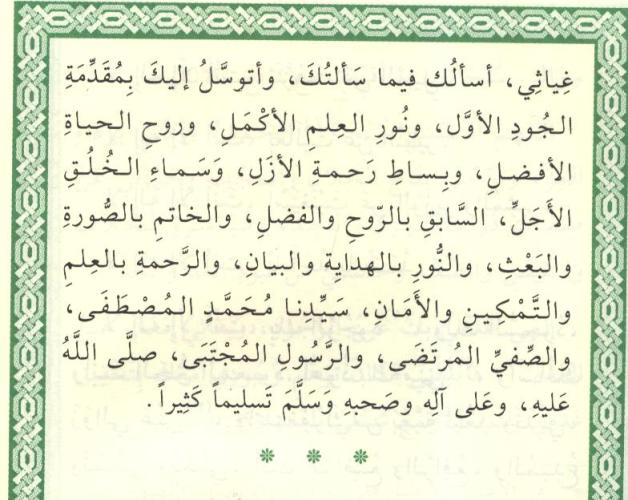 غِياثِي، أسألُك فيما سَألتُكَ، وأتوسَّلُ إليكَ بِمُقَدِّمَةِ
الجُودِ الأوَّل، ونُورِ العِلمِ الأكْمَلِ، وروحِ الحياةِ
الأفضلِ، وبِساطِ رَحمةِ الأزَلِ، وَسَماءِ الخُلُقِ
الأَجَلِّ، السَّابقِ بالرّوحِ والفَضلِ، والخاتمِ بالصُّورةِ
والبَعْثِ، والنُّورِ بالهدايةِ والبيانِ، والرَّحمةِ بالعِلمِ
والتَّمْكِينِ والأَمَانِ، سَيِّدِنا مُحَمَّدٍ المُصْطَفَى،
والصَّفيِّ المُرتَضَى، والرَّسُولِ المُجْتَبَى، صلَّى اللَّهُ
عَليهِ، وعَلى آلِه وصَحبهِ وَسَلَّمَ تَسليماً كَثِيراً.